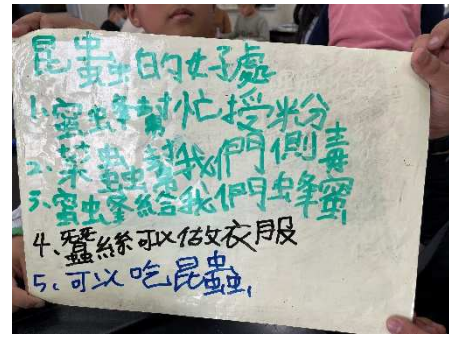 昆蟲的好處
1. 蜜蜂幫忙授粉
2. 菜蟲幫我們側毒
3. 蜜蜂給我們蜂蜜
4. 蠶絲可以做衣服
5. 可以吃昆蟲